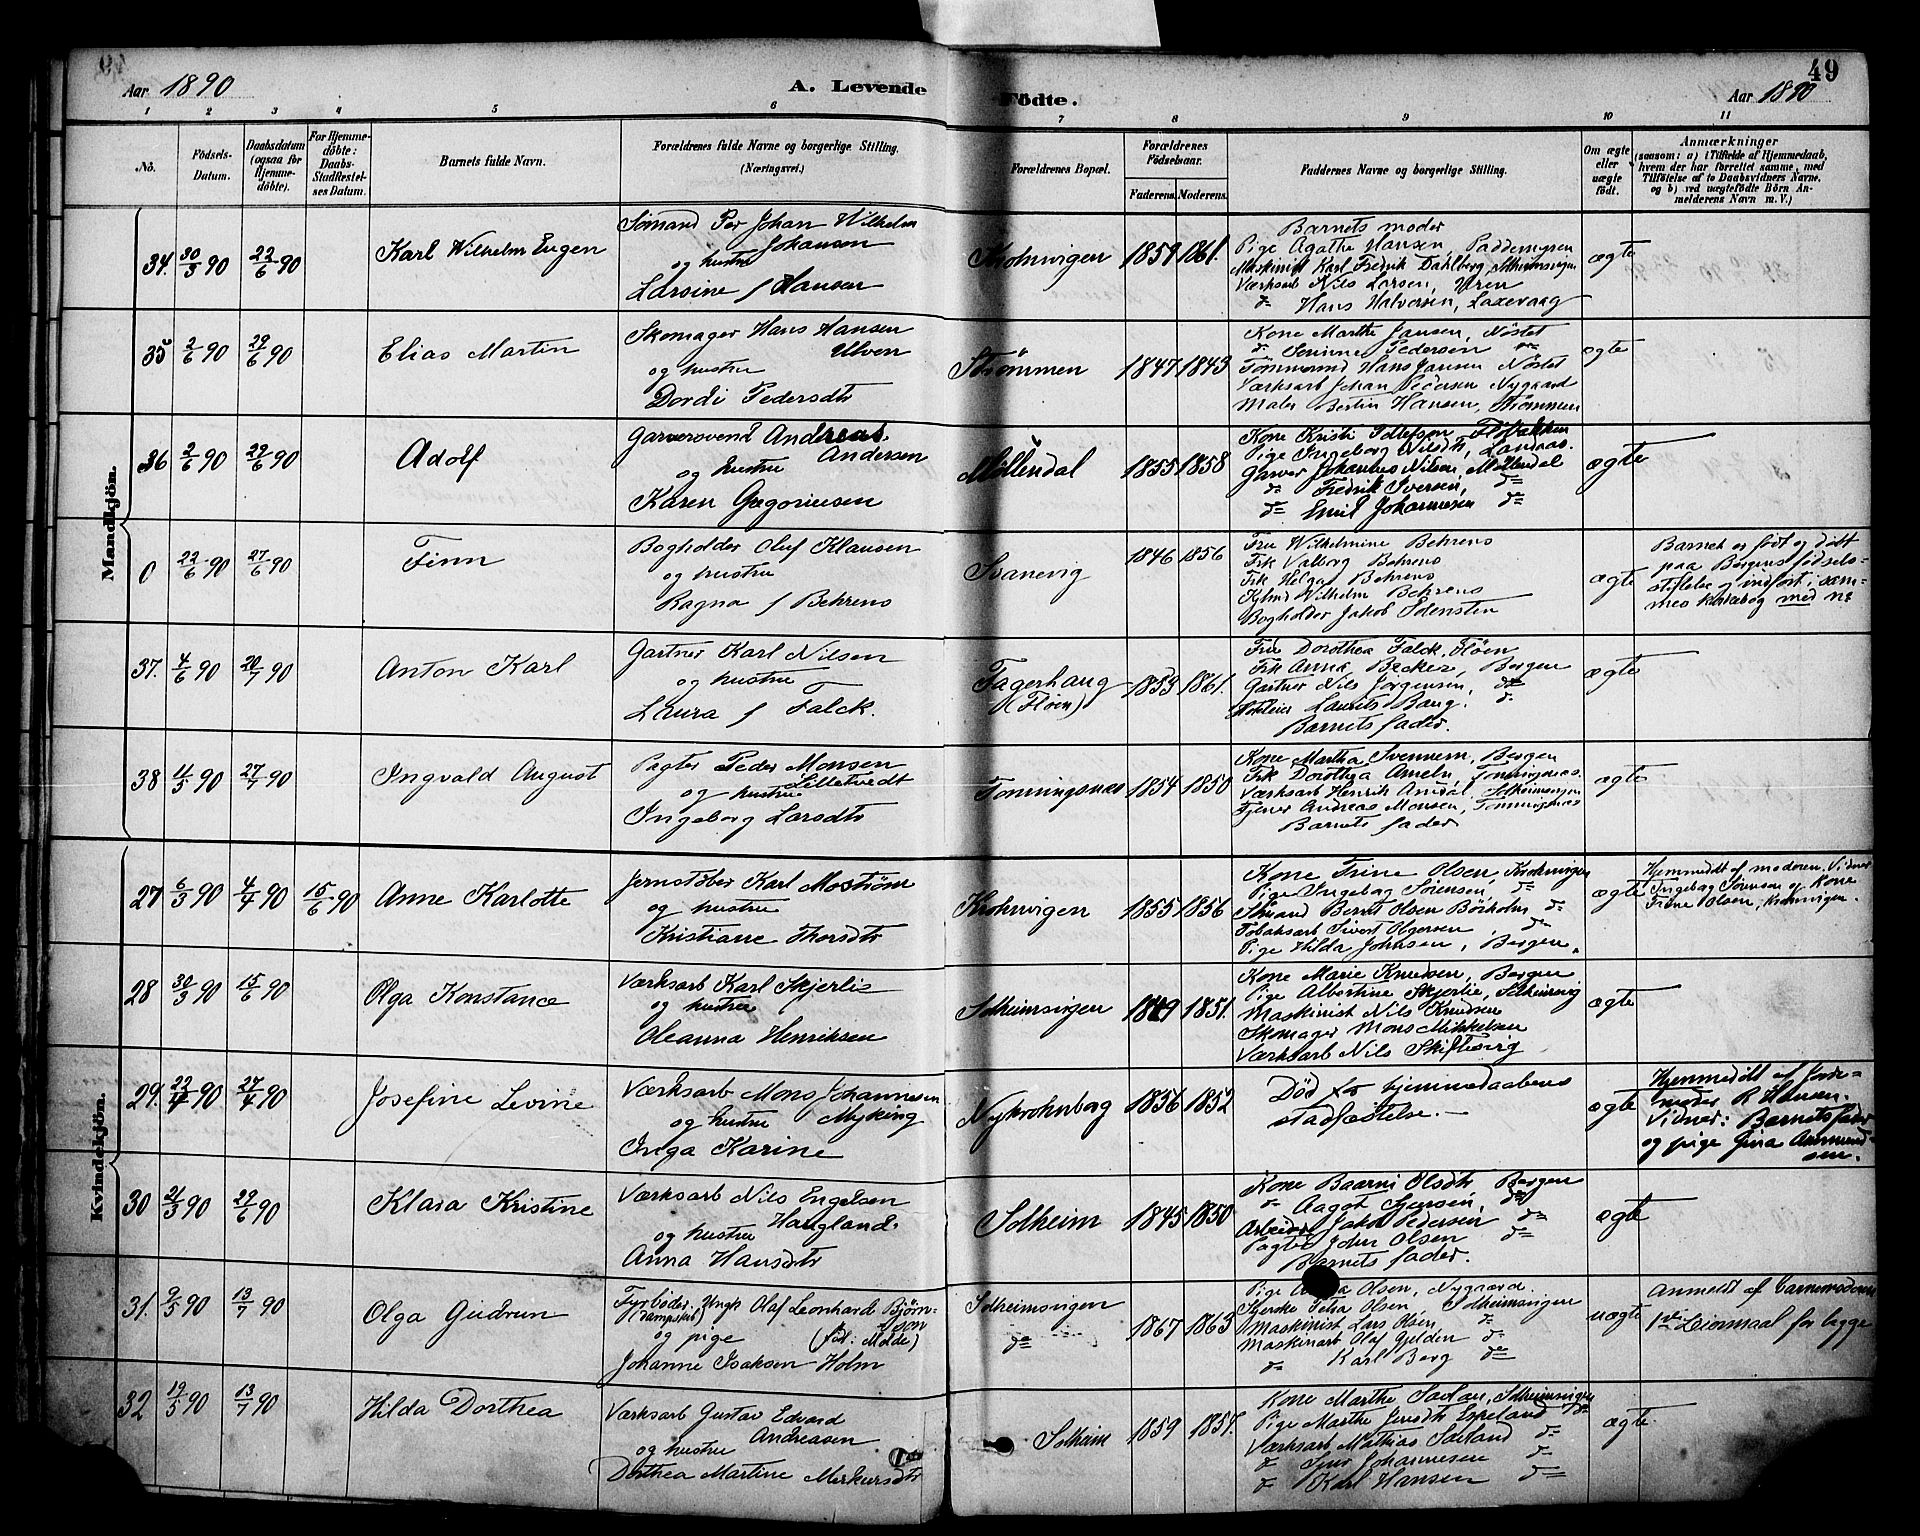 Aar 1890
A. Levende Födte.
49
Aar 1890
1 2 3 4 5 6 7 8 9 10 11
No.
Födsels-Datum.
Daabsdatum (ogsaa for Hjemmedöbte).
For Hjemmedöbte: Daabs-Stadfæstelses Datum.
Barnets fulde Navn.
Forældrenes fulde Navne og borgerlige Stilling. (Næringsvei.)
Forældrenes Bopæl.
Forældrenes Födselsaar.
Faderens. Moderens.
Faddernes Navne og borgerlige Stilling.
Om ægte eller uægte födt.
Anmærkninger
(saasom: a) i Tilfælde af Hjemmedaab, hvem der har forrettet samme, med Tilföielse af to Daabsvidners Navne, og b) ved uægtefödte Börn Anmelderens Navn m. V.)
Mandkjön.
34. 30/3 90 22/6 90
Karl Wilhelm Eugen
Sömand Per Johan Wilhelm
Johansen
og hustru
Larsine f Hansen
Krohnvigen 1859 1861.
Barnets moder
Pige Agathe Hansen, Paddemyren
Maskinist Karl Fredrik Dahlberg, Solheimsvigen
Værksarb Nils Larsen, Uren
do Hans Halvorsen, Laxevaag
ægte
35 2/6 90 29/6 90
Elias Martin
Skomager Hans Hansen
Ulven
og hustru
Dordi Pedersdtr
Strømmen 1847 1843
Kone Marthe Jansen, Nöstet
do Serinne Pedersen do
Tömmermd Hans Jansen Nöstet
Værksarb Johan Pedersen Nygaard
Maler Bertin Hansen, Strømmen
ægte
36 2/6 90 29/6 90
Adolf
Garversvend Andreas
Andersen
og hustru
Karen Gregoriusen
Møllendal 1855 1858
Pige Ingeborg Nilsdtr, Landaas.
Garver Johannes Nilsen, Møllendal
do Fredrik Iversen, do
do Emil Johannesen do
ægte
0 22/6 90 27/6 90
Finn
Bogholder Oluf Klausen
og hustru
Ragna f Behrens
Svanevig 1846 1856
Fru Wilhelmine Behrens
Frk Valborg Behrens
Frk Helga Behrens
Kjbmd Wilhelm Behrens
Bogholder Jakob Idensten
ægte
Barnet er født og døbt
paa Bergens fødsels-
stiftelse og indført i sam-
mes kirkebog med no
37. 4/6 90 20/7 90
Anton Karl
Gartner Karl Nilsen
og hustru
Laura f Falck.
Fagerhaug
(Fløen)
1853 1861.
Fru Dorothea Falck, Fløen
Frk Anna Becker, Bergen
Gartner Nils Jörgensen, do
Laurits Baug. do
Barnets fader.
ægte
38 11/5 90 27/7 90
Ingvald August
Pagter Peder Monsen
Lilletvedt
og hustru
Ingeborg Larsdtr
Tonningsnes 1854 1850
Kone Martha Svennem, Bergen
Frk Dorothea Ameln, Tonningsnes.
Værksarb Henrik Amdal, Solheimsvigen
Tjener Andreas Monsen, Tonningsnes
Barnets fader
ægte
Kvindekjön.
27 6/3 90 4/4 90 15/6 90
Anne Karlotte
Jernstöber Karl Moström
og hustru
Kristiane Thorsdtr
Krohnvigen 1855 1856
Kone Trine Olsen, Krohnvigen
Pige Ingebog Sörensen, do
Sömand Bernt Olsen Börkolm do
Tobaksarb Sivert Olgersen, do
Pige Hilda Johnsen, Bergen.
ægte
Hjemmedt af moderen. Vidner
Ingebog Sörensen og Kone
Trine Olsen, Krohnvigen.
28 30/3 90 15/6 90
Olga Konstance
Værksarb Karl Skjerlie
og hustru
Oleanna Henriksen
Solheimsvigen 1849 1851.
Kone Marie Knudsen, Bergen
Pige Albertine Skjerlie, Solheimsvig
Maskinist Nils Knudsen
Skomager Mons Mikkelsen
Værksarb Nils Skiftesvig
ægte
29. 22/4 90 27/4 90
Josefine Levine
Værksarb Mons Johannesen
Myking
og hustru
Inga Karine
Nykrohnborg 1856 1852
Död før hjemmedaabens
stadfæstelse.
ægte
Hjemmedöbt af Jorde-
moder R Hansen.
Vidner: Barnets fader
og pige Gina Ammund-
sen.
30 21/3 90 29/6 90
Klara Kristine
Værksarb Nils Engelsen
Haugland.
og hustru
Anna Hansdtr
Solheim 1845 1850
Kone Baarni Olsdtr Bergen
do Aagot Syversen, do
Arbeider Jakob Pedersen do
Pagter John Olsen do
Barnets fader.
ægte
31. 9/5 90 13/7 90
Olga Gudrun
Fyrböder, Ungk Olaf Leonhard Björn-
(Dampskib) son
og pige (föd: Molde)
Johanne Isaksen Holm
Solheimsvigen
do
1867 1863
Pige Olsen, Nygaard.
Petra Olsen, Solheimsvigen
Maskinist Lars Olsen do
Maskinarb Olaf Gjelden do
do Karl Berg do
uægte
Anmeldt af barnemoderen
1ste Leiermaal for begge
32 19/5 90 13/7 90
Hilda Dorthea
Værksarb Gustav Edvard
Andreasen
og hustru
Dorthea Martine Merkursdtr
Solheim 1859 1857.
Kone Marthe Sælan, Solheimsvigen
Pige Marthe Jensdtr Espeland do
Værksarb Mathias Sæland do
do Johannesen do
do Karl Hansen do
ægte.